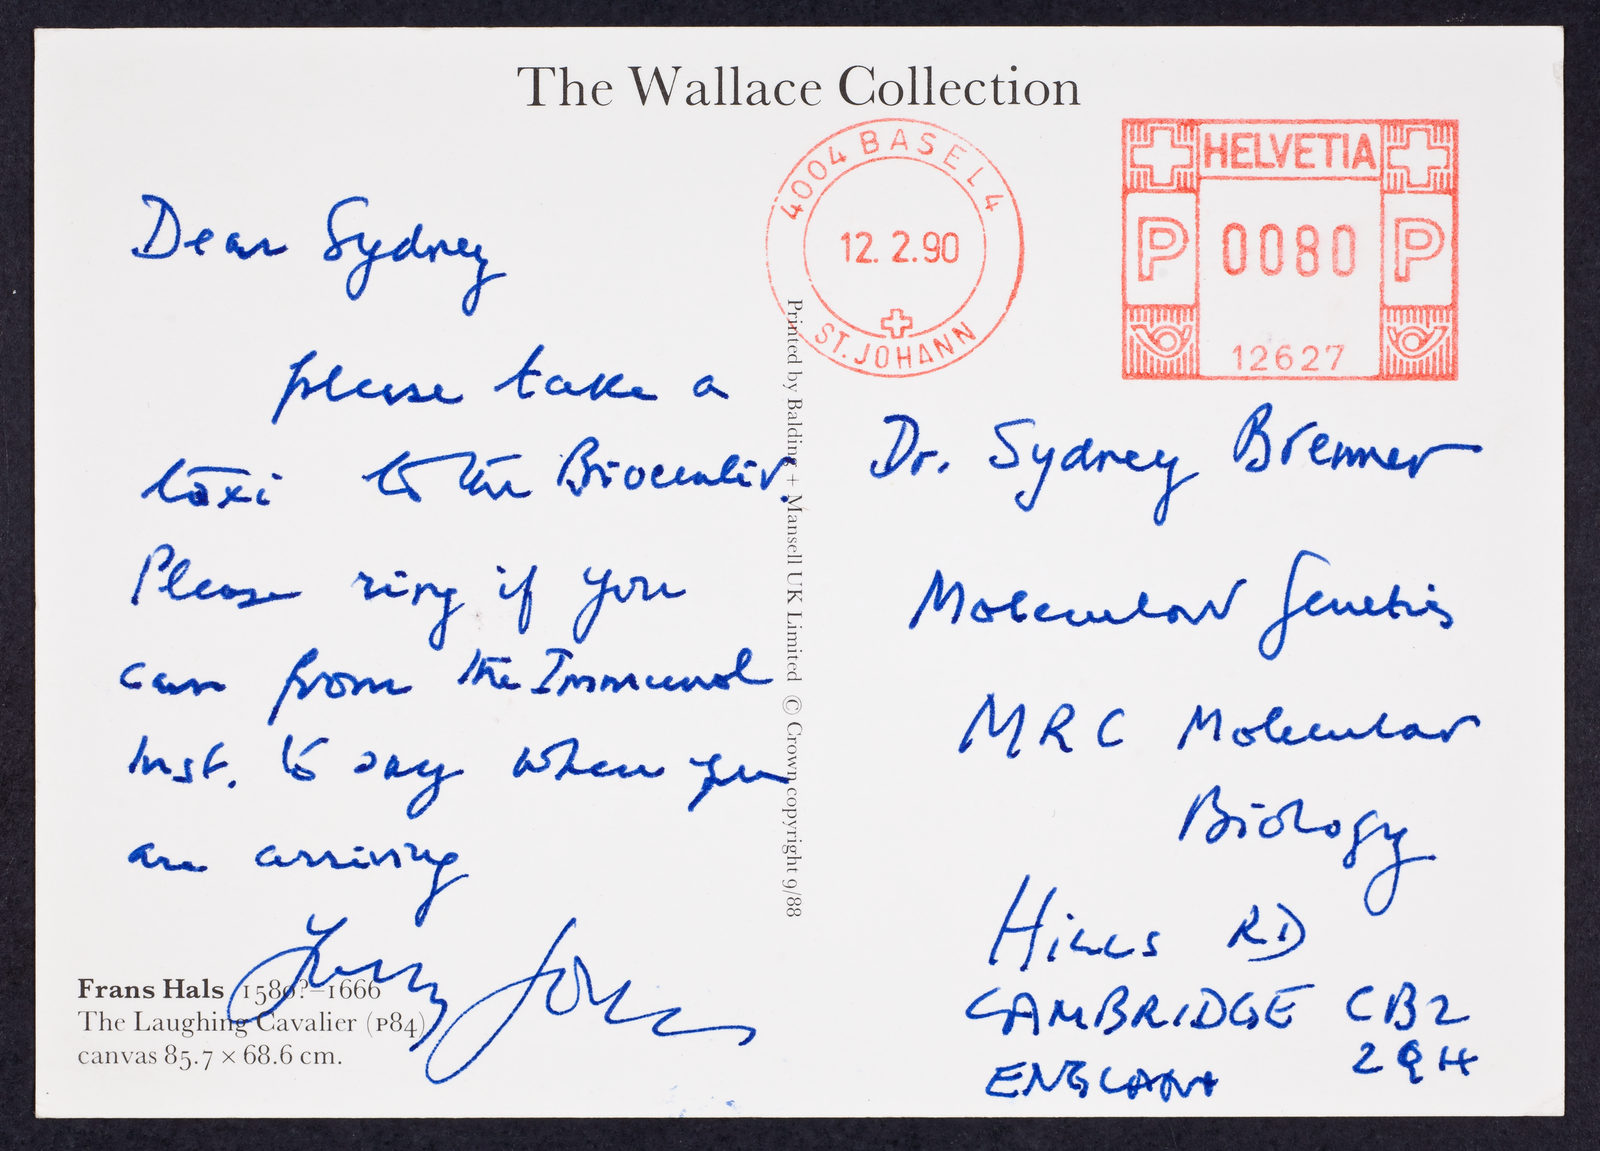 The Wallace Collection
4004 BASEL 4
12. 2.90
ST. JOHANN
HELVETIA
P 0080 P
12627
Dear Sydney
please take a
taxi to the Biocenter.
Please ring if you
can from the Immunol
Inst. to say when you
are arriving
Frans Hals 1580?–1666
The Laughing Cavalier (P84)
canvas 85.7 × 68.6 cm.
Printed by Balding + Mansell UK Limited © Crown copyright 9/88
Dr. Sydney Brenner
Molecular Genetics
MRC Molecular
Biology
Hills RD
CAMBRIDGE CB2
2QH
ENGLAND